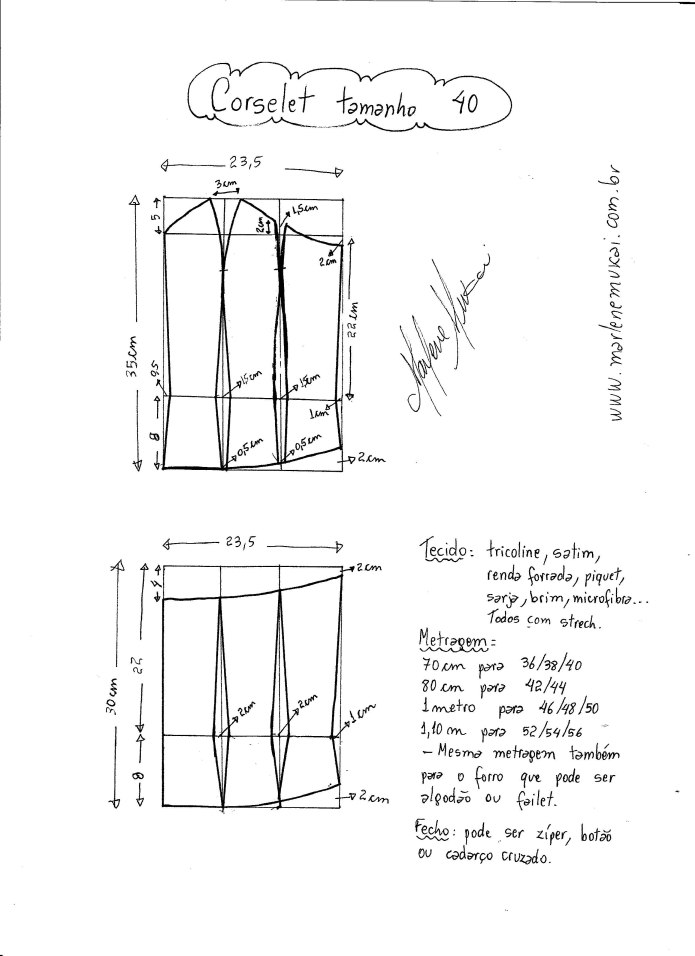 Corselet tamanho 40
23,5
3cm
1,5cm
5
2cm
2cm
35cm
22cm
0,5
1,5cm
1,5cm
1cm
8
0,5cm
0,5cm
2cm
Marlene Mukai
www.marlenemukai.com.br
23,5
2cm
4
22
30cm
2cm
2cm
1cm
8
2cm
Tecido: tricoline, satim,
renda forrada, piquet,
sarja, brim, microfibra...
Todos com strech.
Metragem:
70cm para 36/38/40
80cm para 42/44
1 metro para 46/48/50
1,10m para 52/54/56
- Mesma metragem também
para o forro que pode ser
algodão ou failet.
Fecho: pode ser zíper, botão
ou cadarço cruzado.